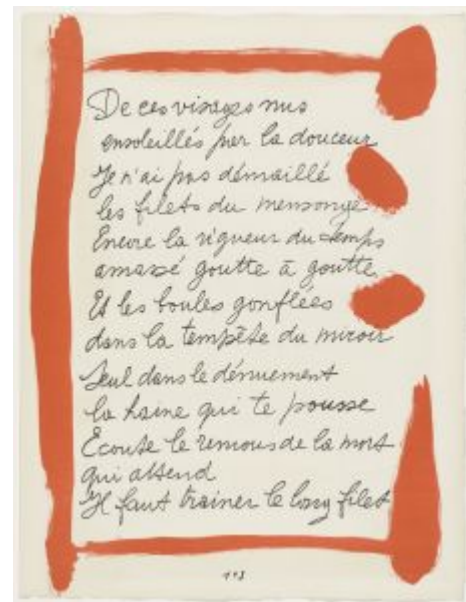 De ces visages nus
ensoleillés par la douceur
Je n'ai pas démaillé
les filets du mensonge
Encore la rigueur du temps
amassé goutte à goutte
Et les boules gonflées
dans la tempête du miroir
Seul dans le dénuement
la haine qui te pousse
Ecoute le remous de la mort
qui attend
Il faut trainer le long filet
113